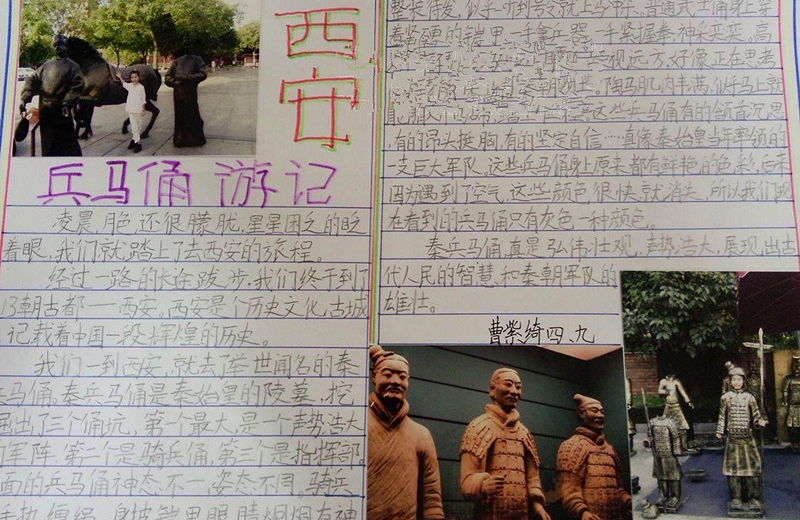 西
安
兵马俑 游记
凌晨,月色还很朦胧,星星困乏的眨
着眼,我们就踏上了去西安的旅程。
经过一路的长途跋涉,我们终于到了
13朝古都——西安。西安是个历史文化古城
记载着中国一段辉煌的历史。
我们一到西安,就去了举世闻名的秦
兵马俑,秦兵马俑是秦始皇的陵墓,挖
掘出了三个俑坑,第一个最大,是一个声势浩大
的军阵,第二个是骑兵俑,第三个是指挥部
面的兵马俑神态不一,姿态不同。骑兵
手执缰绳,身披铠甲,眼睛炯炯有神
整装待发,似乎听到号令就上马冲杀,普通武士俑身上穿
着坚硬的铠甲,一手拿兵器,一手紧握拳,神兵奕奕。高
视远方,好像正在思考
陶马肌肉丰满,似乎马上就
这些兵马俑有的颔首沉思
,有的昂头挺胸,有的坚定自信……真像秦始皇当年率领的
一支巨大军队。这些兵马俑身上原来都有鲜艳的色彩,后来
因为遇到了空气,这些颜色很快就消失,所以我们现
在看到的兵马俑只有灰色一种颜色。
秦兵马俑,真是弘伟壮观,声势浩大,展现出古
代人民的智慧,和秦朝军队的
雄壮。
曹紫绮四、九